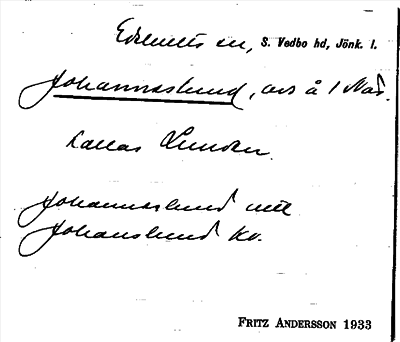 Edshults sn, S. Vedbo hd, Jönk. l.
Johanneslund, avs å 1 Näs.
kallas Lunden.
Johanneslund uttl
Johanslund Kv.
FRITZ ANDERSSON 1933